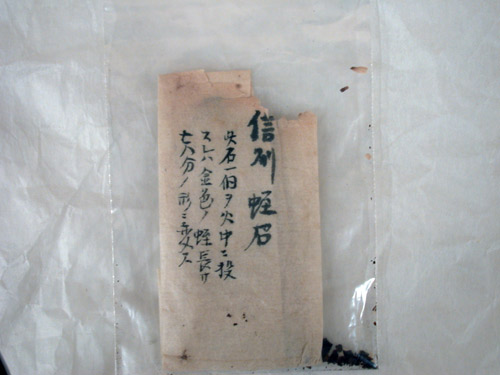 信州蛭石
此石一個ヲ火中ニ投
スレバ金色ノ蛭長サ
七八分ノ形ニ変ス